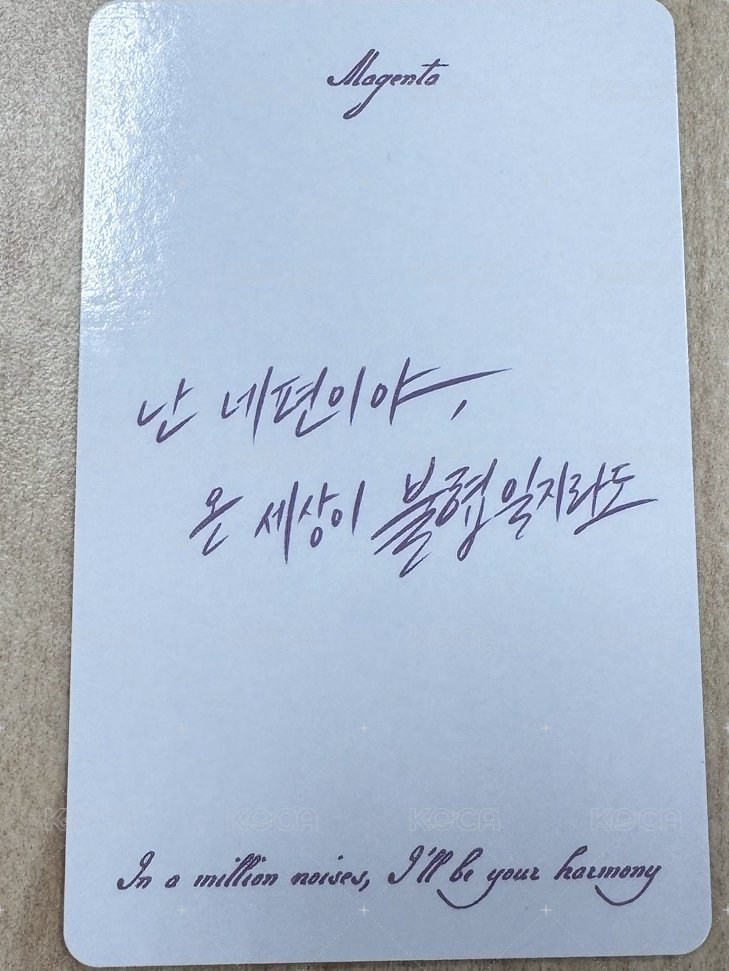 Magenta
난 네편이야,
온 세상이 불협일지라도
In a million noises, I'll be your harmony
KOCA KOCA KOCA